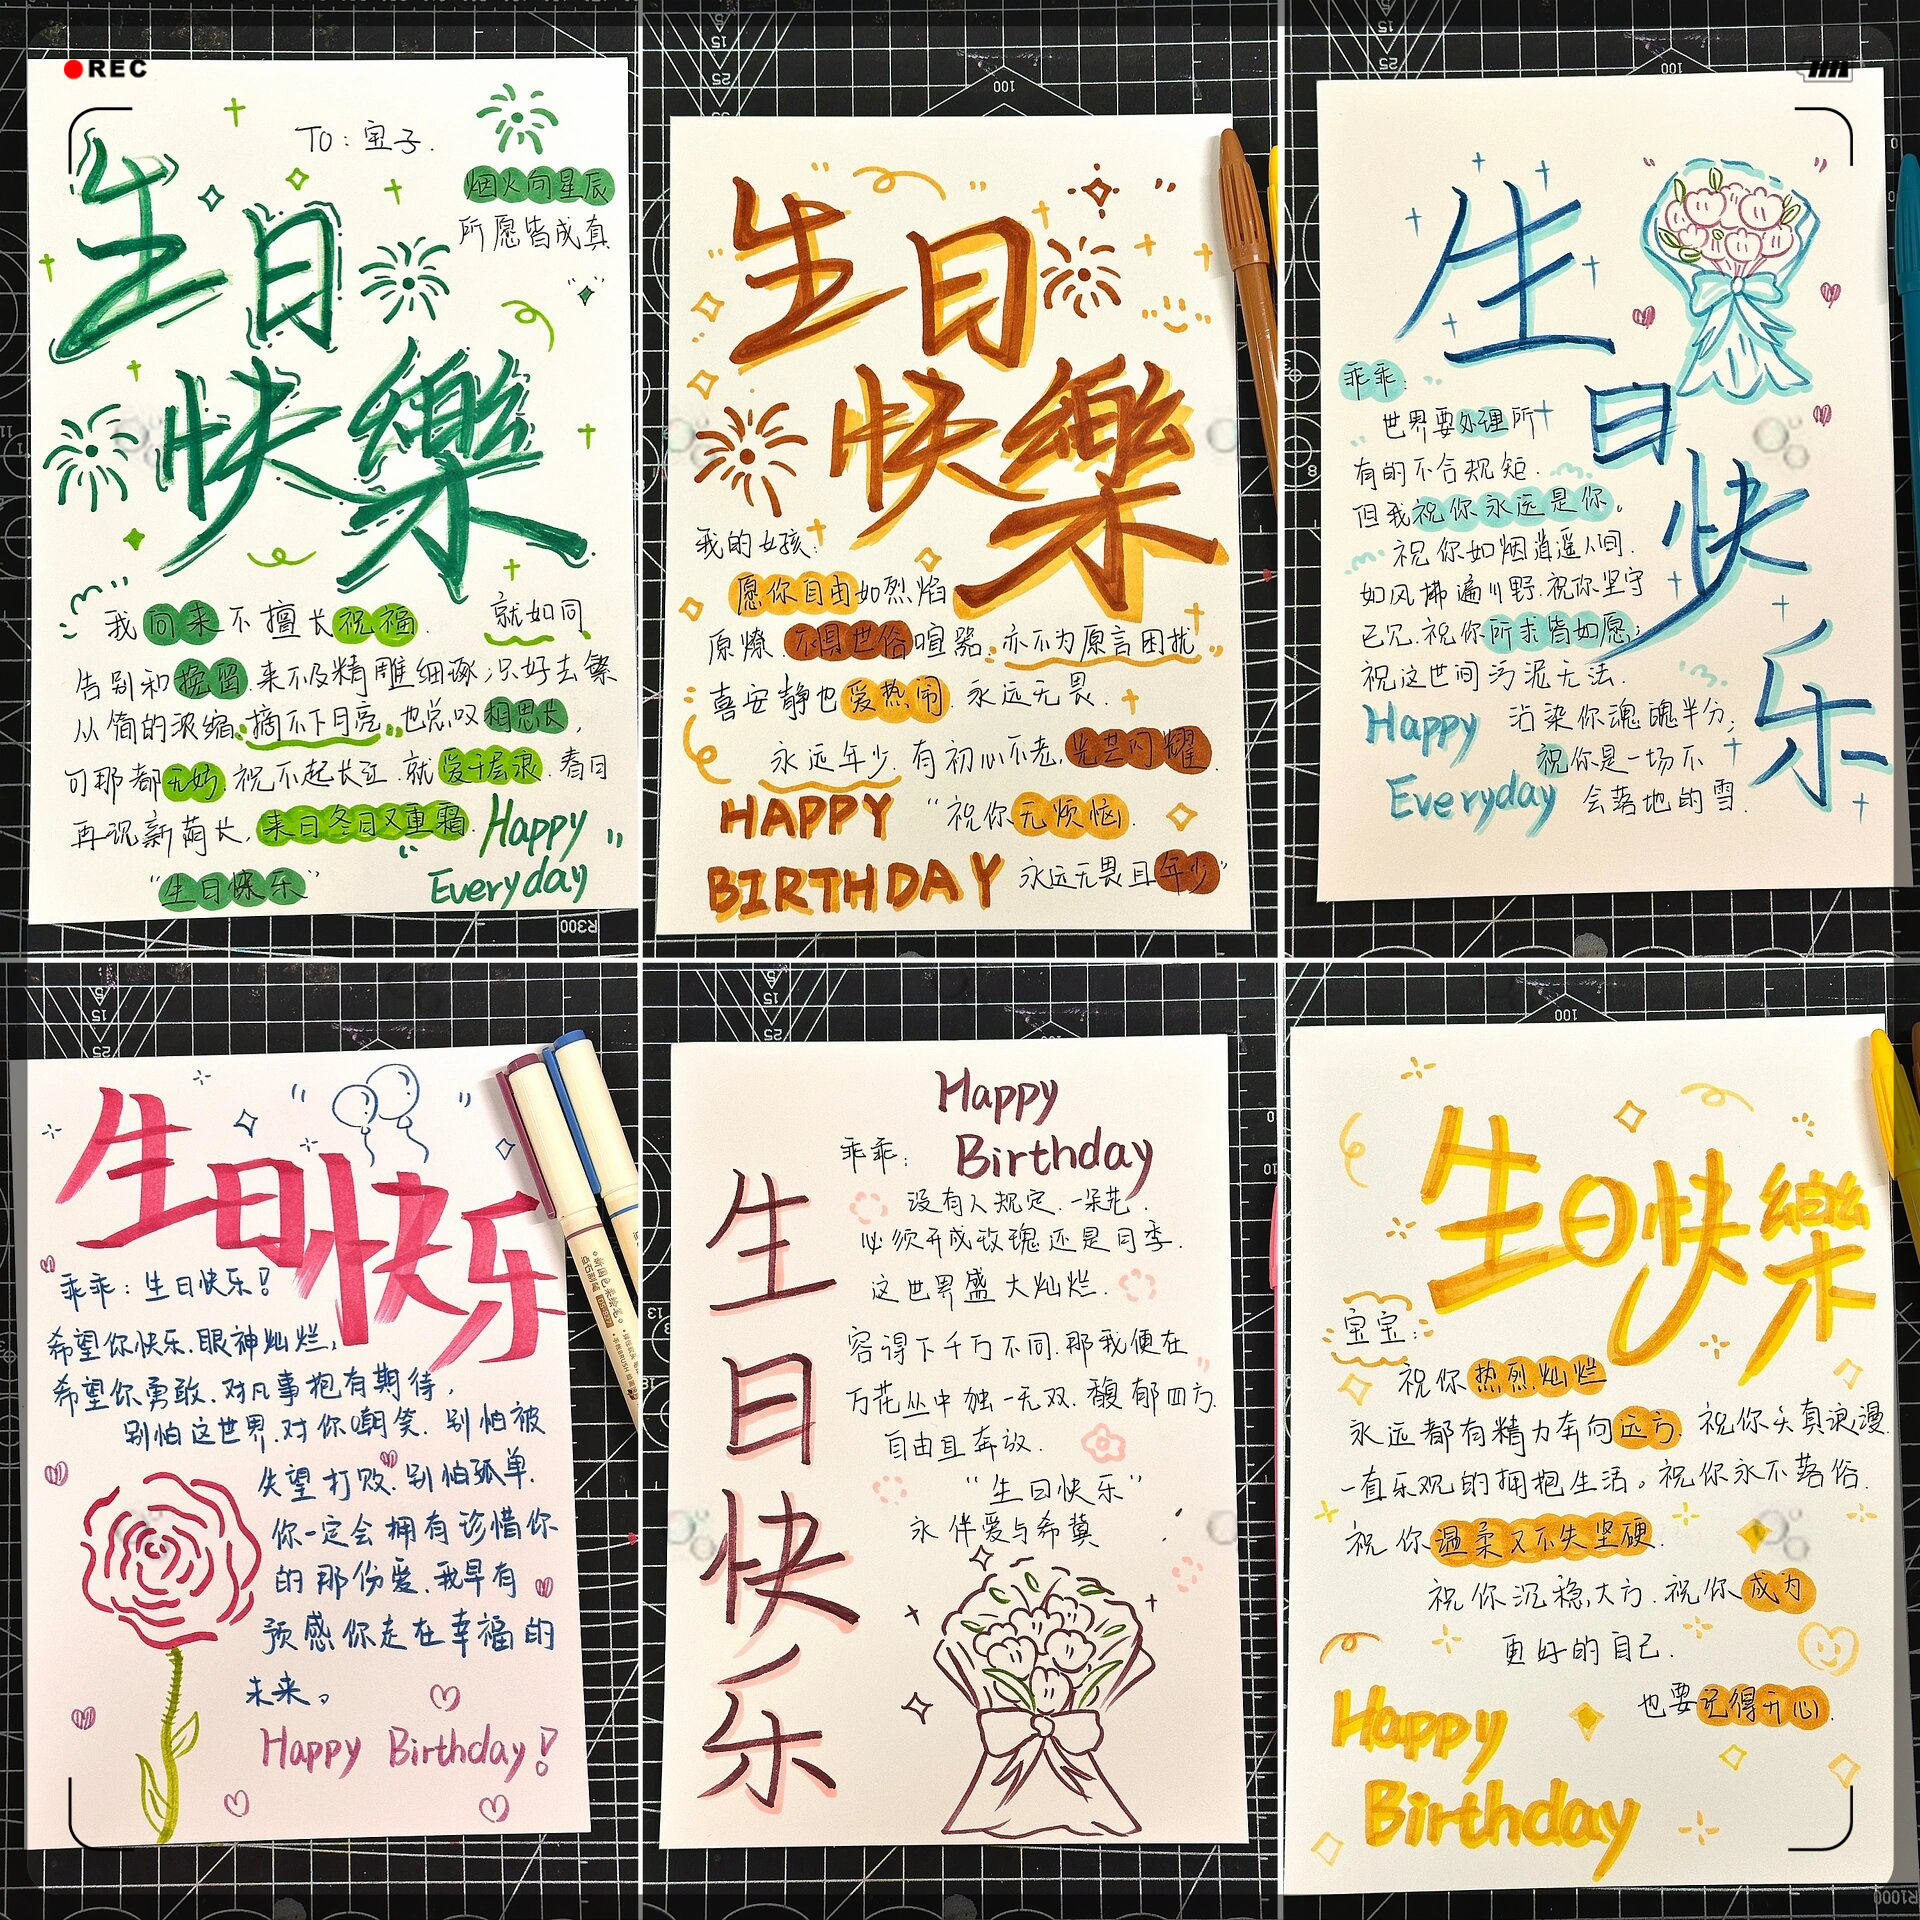 REC
TO：宝子.
烟火向星辰
所愿皆成真
生日
快樂
我向来不擅长祝福. 就如同
告别和挽留.来不及精雕细琢;只好去繁
从简的浓缩.摘不下月亮.也总叹相思长,
可那都无妨.祝不起长江.就爱千层浪.春日
再说新萌长.来日冬日又重霜.
Happy
"生日快乐"
Everyday
生日
快樂
我的女孩:
愿你自由如烈焰
原燎.不惧世俗喧嚣.亦不为原言困扰
喜安静也爱热闹.永远无畏.
永远年少.有初心不老.光芒闪耀
HAPPY "祝你无烦恼.
BIRTHDAY 永远无畏且年少"
生
日
快
乐
乖乖:
世界要处理所
有的不合规矩.
但我祝你永远是你。
祝你如烟逍遥人间.
如风拂遍川野.祝你坚守
己见.祝你所求皆如愿;
祝这世间污泥无法.
沾染你魂魄半分;
祝你是一场不
会落地的雪.
Happy
Everyday
生日快乐
乖乖：生日快乐！
希望你快乐.眼神灿烂,
希望你勇敢.对凡事抱有期待,
别怕这世界.对你嘲笑.别怕被
失望打败.别怕孤单.
你一定会拥有珍惜你
的那份爱.我早有
预感你走在幸福的
未来。
Happy Birthday!
Happy
Birthday
生
日
快
乐
乖乖:
没有人规定.一朵花.
必须开成玫瑰还是月季.
这世界盛大灿烂.
容得下千万不同.那我便在
万花丛中独一无双.馥郁四方.
自由且奔放.
"生日快乐"
永伴爱与希冀
生日快樂
宝宝:
祝你热烈灿烂
永远都有精力奔向远方.祝你天真浪漫.
一直乐观的拥抱生活。祝你永不落俗.
祝你温柔又不失坚硬.
祝你沉稳大方.祝你成为
更好的自己.
也要记得开心.
Happy
Birthday